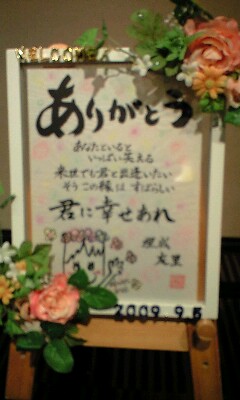 WELCOME
ありがとう
あなたといると
いっぱい笑える
来世でも君と出逢いたい
そう この縁は すばらしい
君に幸せあれ
友里
2009.9.5